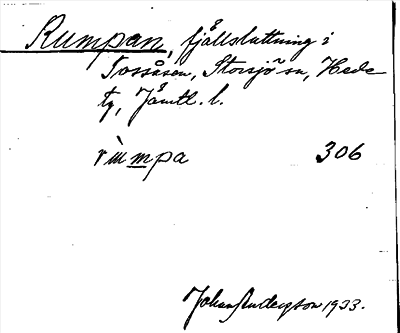 Rumpan, fjällsluttning i
Tossåsen, Storsjö sn, Hede
tg, Jämtl. l.
rùmpa 306
Johan Anderson 1933.